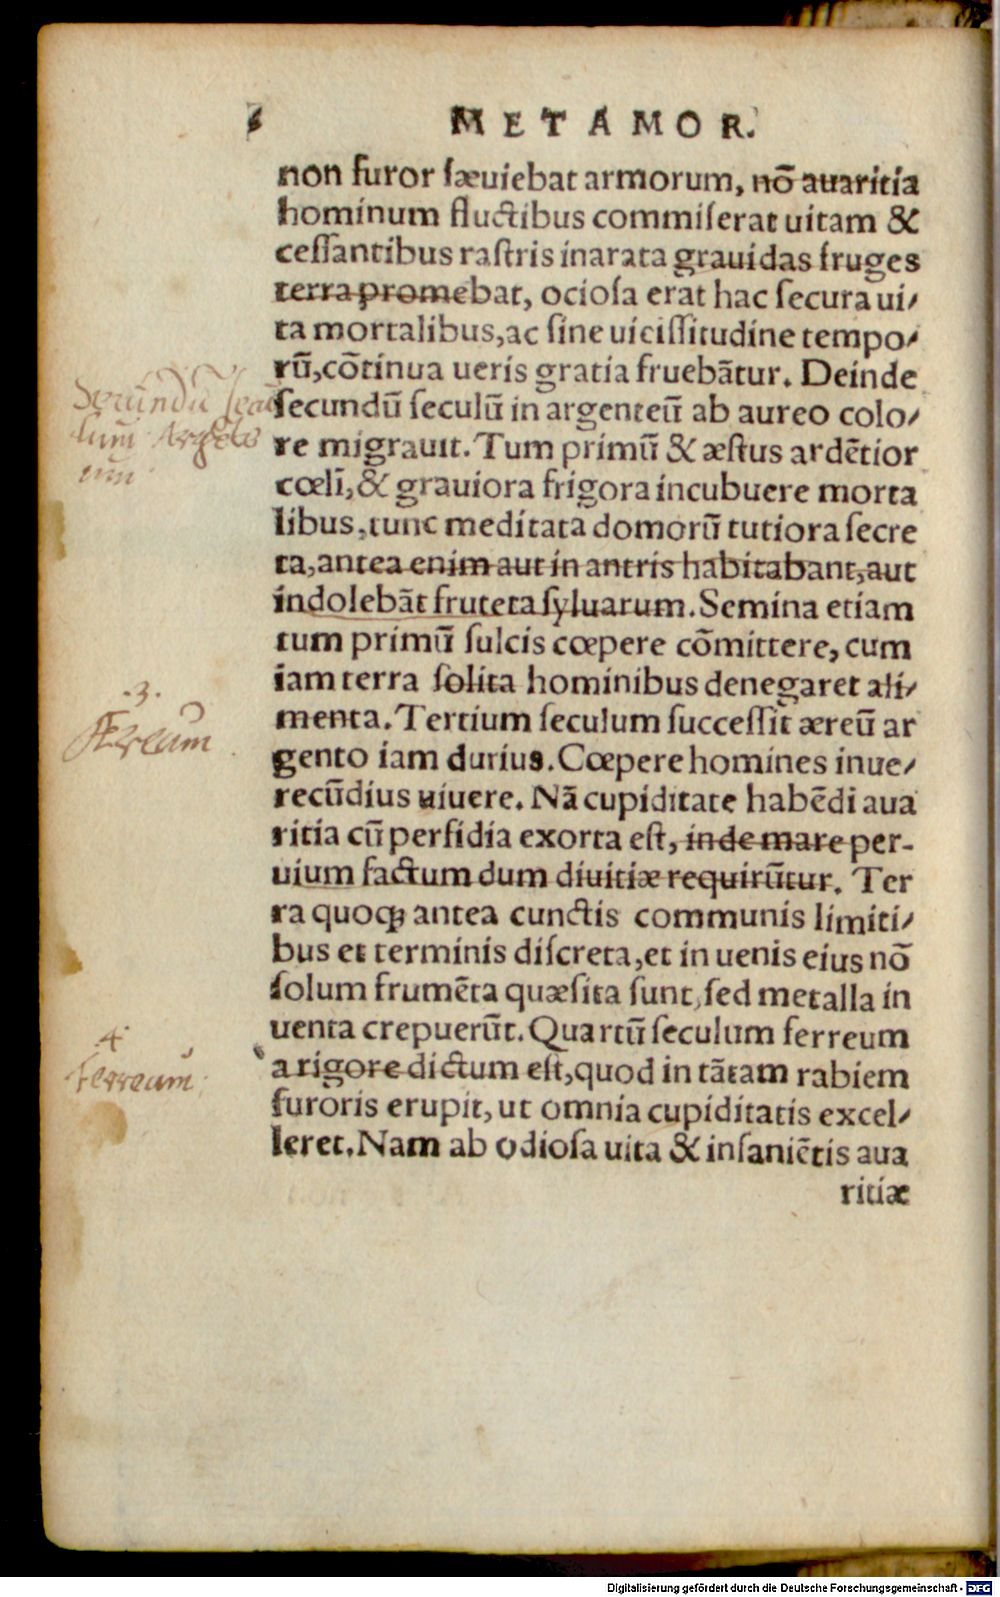 METAMOR.
non furor ſæuiebat armorum, nō auaritia
hominum fluctibus commiſerat uitam &
ceſſantibus raſtris inarata grauidas fruges
terra promebat, ocioſa erat hac ſecura ui/
ta mortalibus, ac ſine uiciſſitudine tempo/
rū, cōtinua ueris gratia fruebātur. Deinde
ſecundū ſeculū in argenteū ab aureo colo/
re migrauit. Tum primū & æſtus ardētior
cœli, & grauiora frigora incubuere morta
libus, tunc meditata domorū tutiora ſecre
ta, antea enim aut in antris habitabant, aut
indolebāt fruteta ſyluarum. Semina etiam
tum primū ſulcis cœpere cōmittere, cum
iam terra ſolita hominibus denegaret ali/
menta. Tertium ſeculum ſucceſſit æreū ar
gento iam durius. Cœpere homines inue/
recūdius uiuere. Nā cupiditate habēdi aua
ritia cū perfidia exorta eſt, inde mare per-
uium factum dum diuitiæ requirūtur. Ter
ra quoq; antea cunctis communis limiti/
bus et terminis diſcreta, et in uenis eius nō
ſolum frumēta quæſita ſunt, ſed metalla in
uenta crepuerūt. Quartū ſeculum ferreum
a rigore dictum eſt, quod in tātam rabiem
furoris erupit, ut omnia cupiditatis excel/
leret. Nam ab odioſa uita & inſaniētis aua
ritiæ
Secundū
.3.
Æreum
4
ferreum
Digitalisierung gefördert durch die Deutsche Forschungsgemeinschaft - DFG